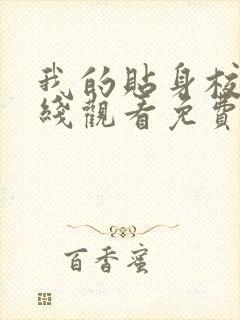 我的贴身校
线观看免费
百香蜜